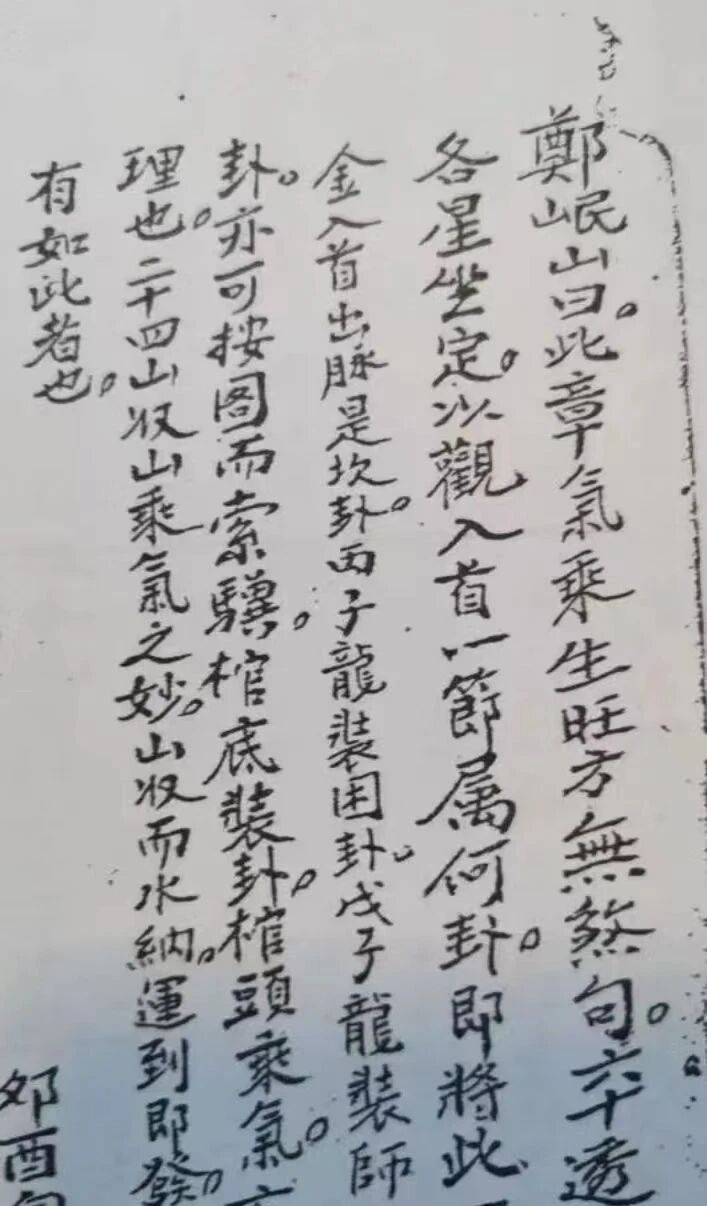 鄭岷山曰。此章氣乘生旺方無煞句。六十透
各星坐定。以觀入首一節屬何卦。即將此
金入首出脉是坎卦。丙子龍裝困卦。戊子龍裝師
卦。亦可按圖而索驥。棺底裝卦。棺頭乘氣。
理也。二十四山收山乘氣之妙。山收而水納。運到即發。
有如此者也。